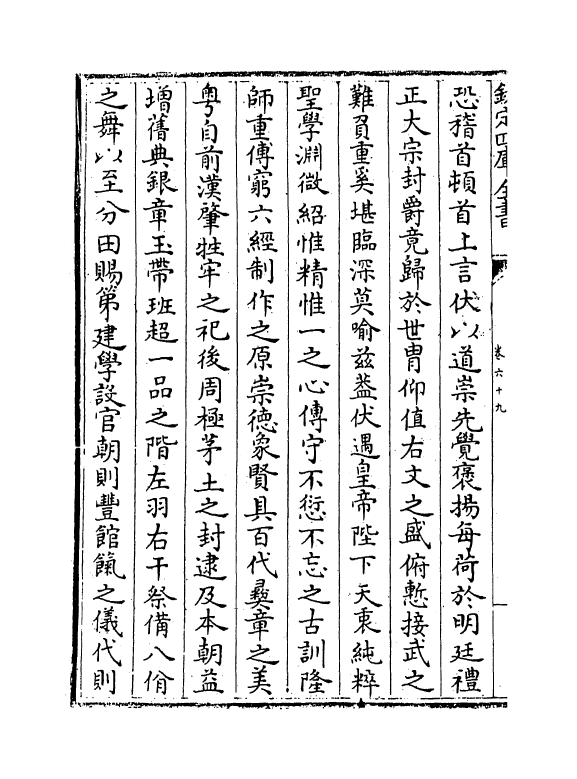 欽定四庫全書
卷六十九
恐稽首頓首上言伏以道崇先覺褒揚每荷於明廷禮
正大宗封爵竟歸於世胄仰值右文之盛俯慙接武之
難負重奚堪臨深莫喻茲葢伏遇皇帝陛下天秉純粹
聖學淵微紹惟精惟一之心傳守不愆不忘之古訓隆
師重傳窮六經制作之原崇德象賢具百代彞章之美
粤自前漢肇牲牢之祀後周極茅土之封逮及本朝益
增舊典銀章玉帶班超一品之階左羽右干祭備八佾
之舞以至分田賜第建學設官朝則豐館餼之儀代則